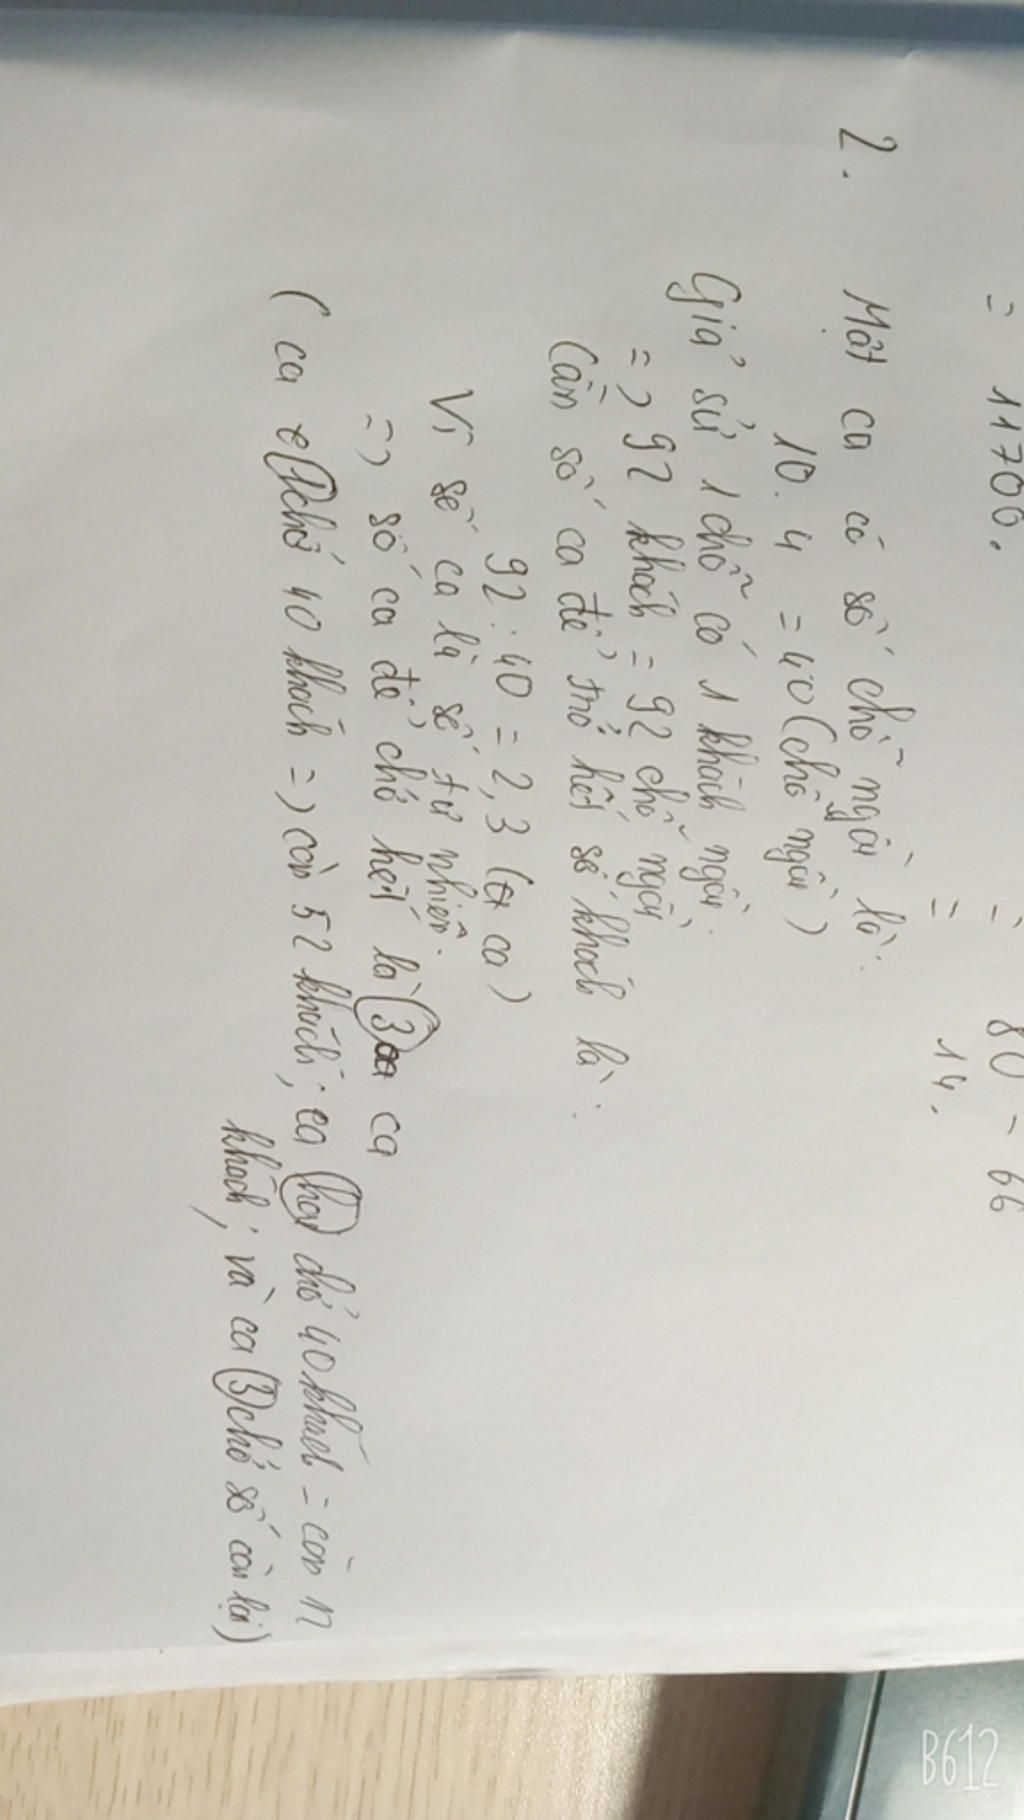 = 11700.
= 80 - 66
= 14.
2. Một ca có số chỗ ngồi là:
10. 4 = 40 (chỗ ngồi)
Giả sử 1 chỗ có 1 khách ngồi.
=> 92 khách = 92 chỗ ngồi
Cần số ca để trở hết số khách là:
92 : 40 = 2,3 (ca)
Vì số ca là số tự nhiên.
=> số ca để chở hết là 3 ca
( ca 1 chở 40 khách => còn 52 khách; ca hai chở 40 khách = còn 12
khách; và ca 3 chở số còn lại)
B612